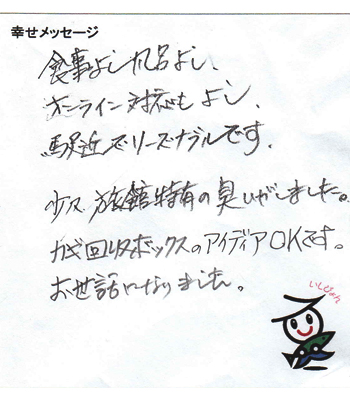 幸せメッセージ
食事よし風呂よし、
オンライン対応もよし、
駅近でリーズナブルです。
少々旅館特有の臭いがしました。
カギ回収ボックスのアイディアOKです。
お世話になりました。
いしぴょん